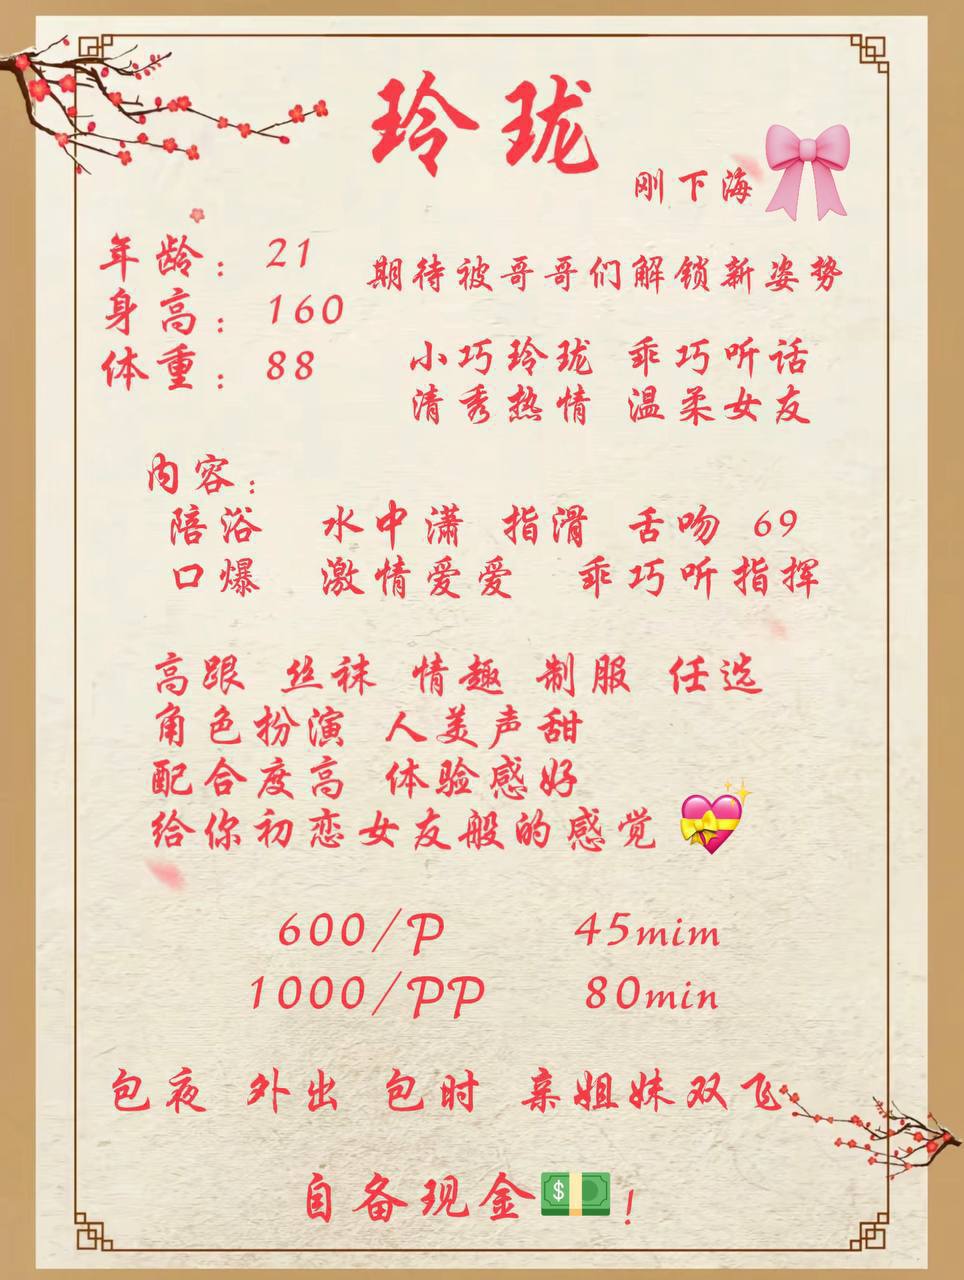 玲珑
刚下海
年龄：21
期待被哥哥们解锁新姿势
身高：160
小巧玲珑 乖巧听话
体重：88
清秀热情 温柔女友
内容：
陪浴 水中潇 指滑 舌吻 69
口爆 激情爱爱 乖巧听指挥
高跟 丝袜 情趣 制服 任选
角色扮演 人美声甜
配合度高 体验感好
给你初恋女友般的感觉
600/P 45mim
1000/PP 80min
包夜 外出 包时 亲姐妹双飞
自备现金！